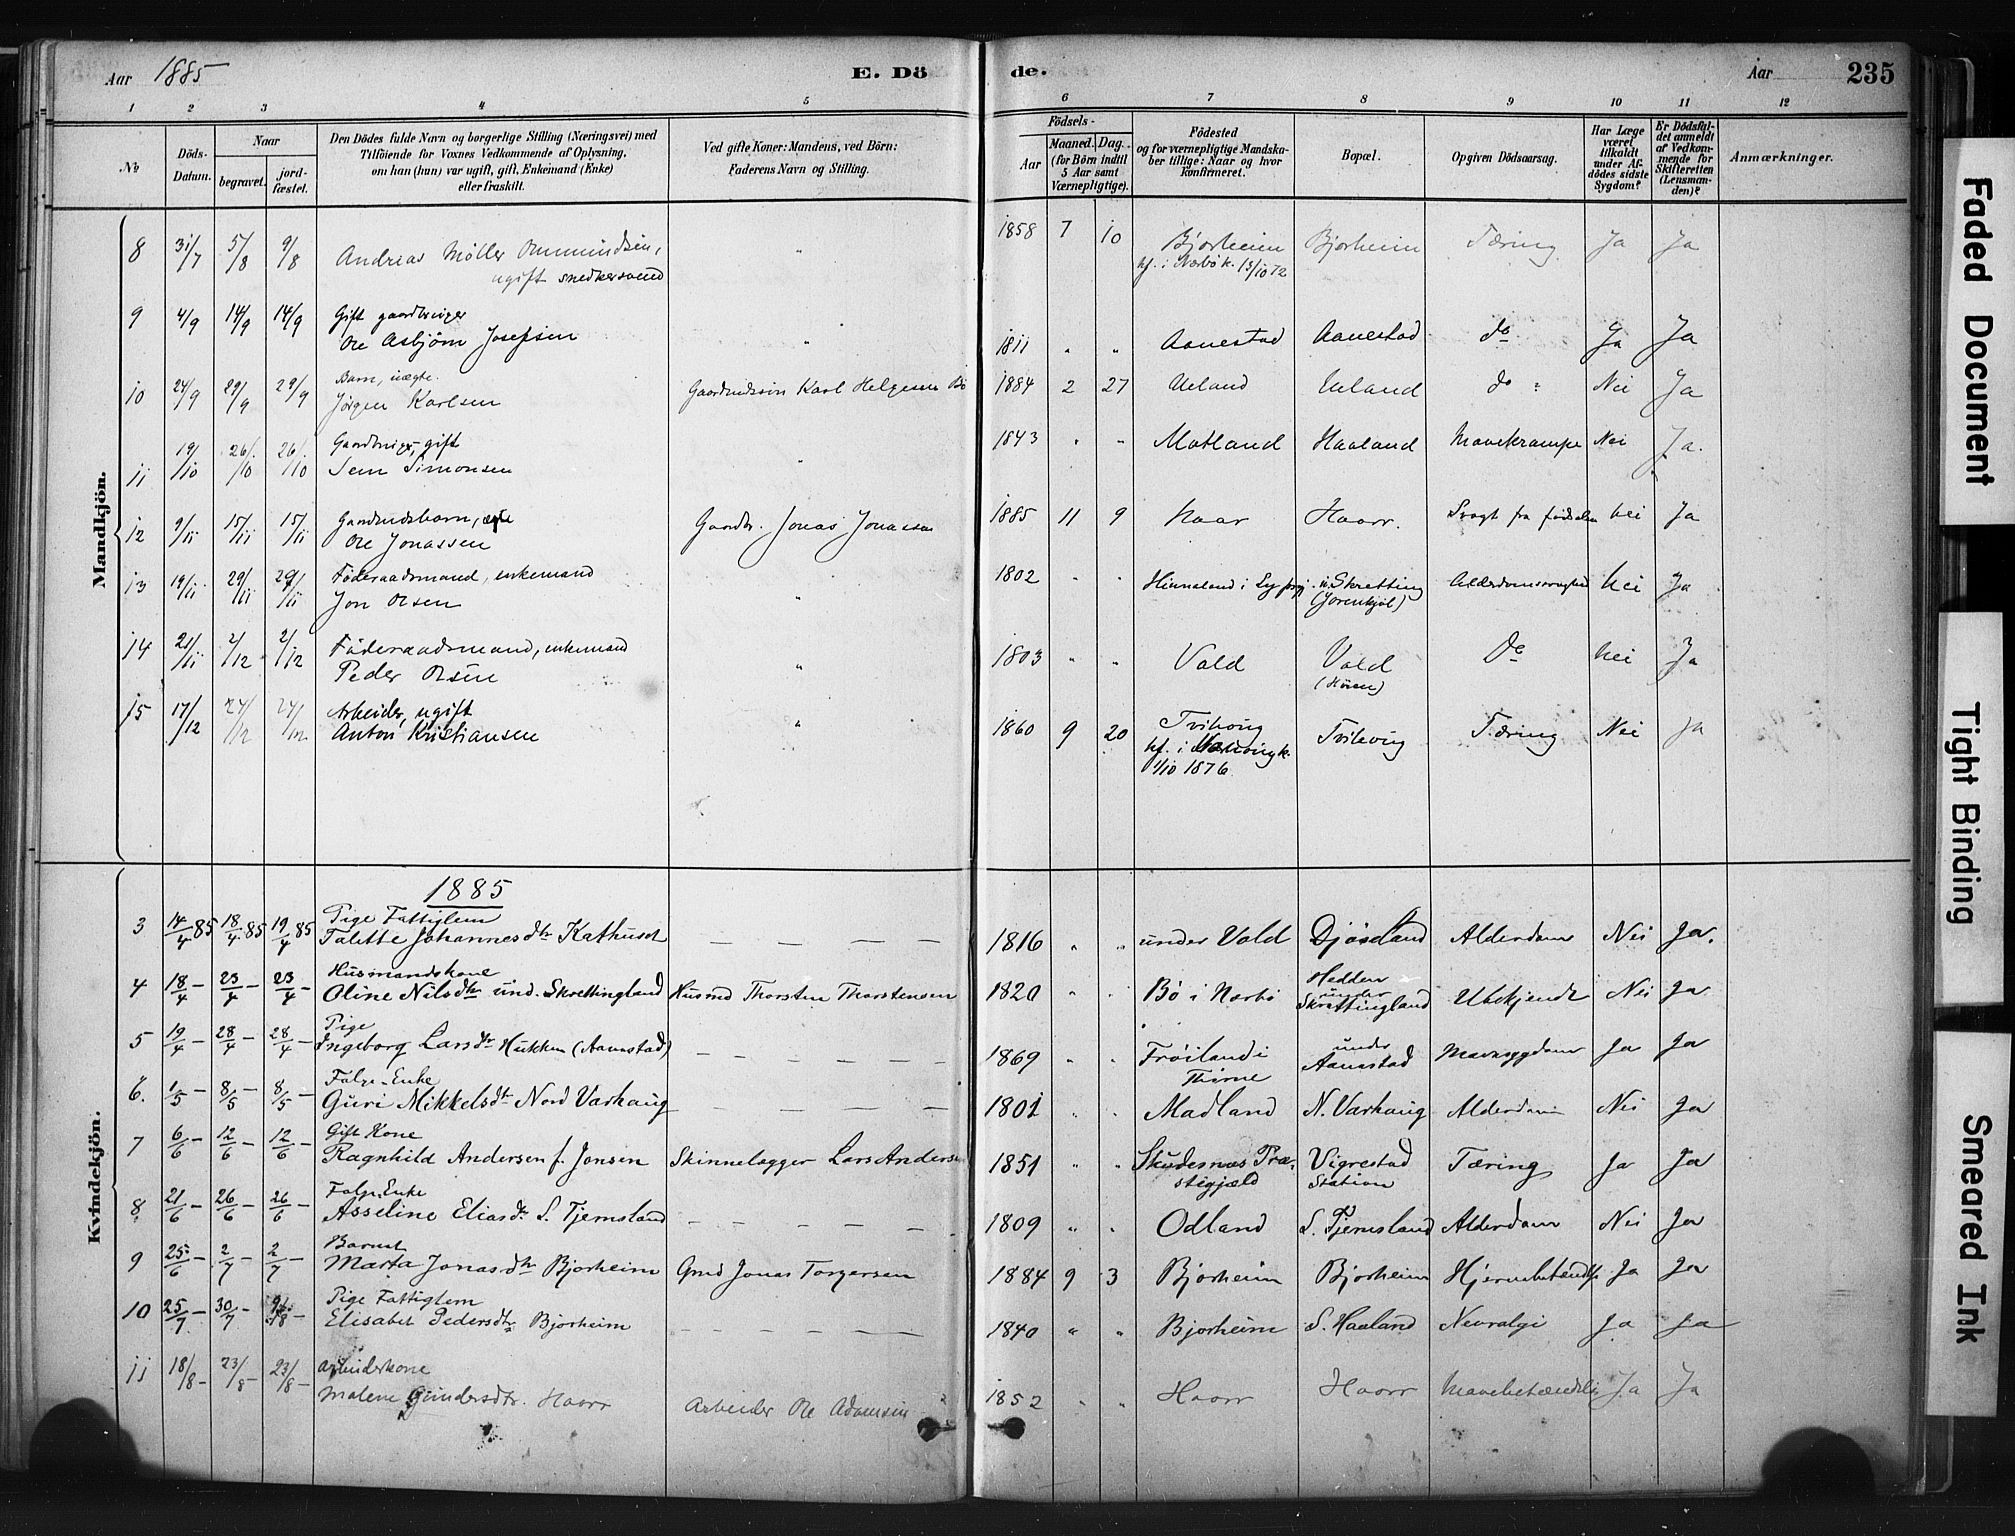 Aar 1885 E. Döde. Aar 235
1 2 3 4 5 6 7 8 9 10 11 12
No. Döds-Datum. Naar begravet. jordfæstet. Den Dödes fulde Navn og borgerlige Stilling (Næringsvei) med Tilföiende for Voxnes Vedkommende af Oplysning, om han (hun) var ugift, gift, Enkemand (Enke) eller fraskilt. Ved gifte Koner: Mandens, ved Börn: Faderens Navn og Stilling. Födsels- Aar Maaned. Dag. (for Börn indtil 5 Aar samt Værnepligtige). Födested og for værnepligtige Mandskaber tillige: Naar og hvor konfirmeret. Bopæl. Opgiven Dödsaarsag. Har Læge været tilkaldt under Afdödes sidste Sygdom? Er Dödsfaldet anmeldt af Vedkommende for Skifteretten (Lensmanden)? Anmærkninger.
Mandkjön.
8 31/7 5/8 9/8 Andreas Möller Ommundsen, ugift snedkersvend " 1858 7 10 Bjorheim kf. i Nærbö k. 13/10 72 Bjorheim Tæring Ja Ja
9 4/9 14/9 14/9 Gift gaardbruger Ole Asbjörn Josefsen " 1811 " " Aanestad Aanestad do Ja Ja
10 24/9 29/9 29/9 Barn, uægte. Jörgen Karlsen Gaardmdssön Karl Helgesen Bö 1884 2 27 Ueland Ueland do Nei Ja
11 19/10 26/10 26/10 Gaardbruger, gift Sem Simonsen " 1843 " " Motland Haaland Mavekrampe Nei Ja.
12 9/11 15/11 15/11 Gaardmdsbarn, ægte Ole Jonassen Gaardbr. Jonas Jonassen 1885 11 9 Haar Haarr. Svagt fra födselen Nei Ja
13 19/11 29/11 29/11 Föderaadsmand, enkemand Jon Olsen " 1802 " " Hinnaland i Lye prgj. u. Skretting (Jorenkjöl) Alderdomssvaghed Nei Ja
14 21/11 2/12 2/12 Föderaadsmand, enkemand Peder Olsen " 1803 " " Vold Vold (Höien) Do Nei Ja
15 17/12 27/12 27/12 Arbeider, ugift Anton Kristiansen " 1860 9 20 Tvihoug kf. i k. 1/10 1876 Tvihoug Tæring Nei Ja
Kvindekjön.
1885
3 14/4 85 18/4 85 19/4 85 Pige Fattiglem Talette Johannesdtr Kathuset — — — — 1816 " " under Vold Djösland Alderdom Nei Ja.
4 18/4 — 23/4 — 23/4 — Husmandskone Oline Nilsdtr und. Skrettingland Husmd Thorsten Thorstensen 1820 " " Bö i Nærbö Hedden under Skrettingland Ubekjendt Nei Ja
5 19/4 — 28/4 — 28/4 — Pige Ingeborg Larsdtr Hukken (Aanestad) — — — — 1869 " " Fröiland i Thime under Aanestad Mavesygdom Ja Ja
6. 1/5 — 8/5 — 8/5 — Folge-Enke Guri Mikkelsdtr Nord Varhaug — — — — 1801 " " Madland N. Varhaug Alderdom Nei Ja
7 6/6 — 12/6 — 12/6 — Gift Kone Ragnhild Andersen f. Jonsen Skinnelægger Lars Andersen 1851 " " Skudesnæs Præstegjæld Vigrestad Station Tæring Ja Ja
8 21/6 — 26/6 — 26/6 — Folge Enke Asseline Eliasdtr S. Tjemsland — — — — — 1809 " " Odland S. Tjemsland Alderdom Nei Ja
9 25/6 — 2/7 — 2/7 — Barnet Marta Jonasdtr Bjorheim Gmd Jonas Torgersen 1884 9 3 Bjorheim Bjorheim Hjernebetændse Ja Ja
10 25/7 — 30/7 — 9/8 — Pige Fattiglem Elisabet Pedersdtr Bjorheim — — — — — 1840 " " Bjorheim S. Haaland Nevralgi Ja Ja
11 18/8 — 23/8 — 23/8 — Arbeiderkone Malene Gundersdtr. Haarr Arbeider Ole Adamsen 1852 " " Haarr Haarr Mavebetændelse Ja Ja
Faded Document
Tight Binding
Smeared Ink